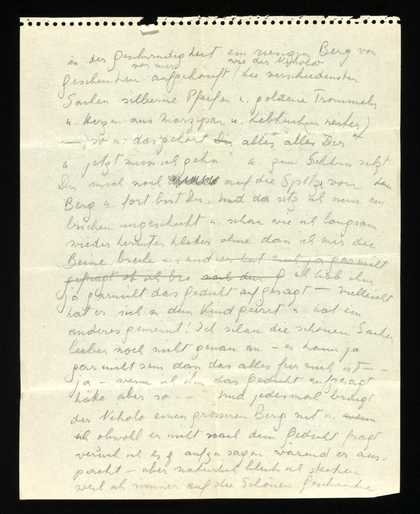 in der Geschwindigkeit ein riesigen Berg von
vor mir wie der Nikolo
Geschenken aufgehäuft (die verschiedensten
Sachen silberne Pfeifen u. goldene Trommeln
u. Herzen aus Marzipan u. Lebkuchen
so u. das gehört alles, alles Dir
u. jetzt muss ich gehn u. zum Schluss setzt
Du mich noch auf die Spitze vom
Berg u. fort bist Du. und da sitz ich nun ein
bischen ungeschickt u. schau wie ich langsam
wieder herunter ohne dass ich mir die
Beine breche u. und
gefragt ob ich
ja garnicht das Gedicht aufgesagt – vielleicht
hat er sich in dem Kind geirrt u. hat ein
anderes gemeint! Ich schau die schönen Sachen
lieber noch nicht genau an – es kann ja
gar nicht sein dass das alles für mich ist –
ja – wenn ich ihm das Gedicht aufgesagt
hätte aber so – – Und jedesmal bringt
der Nikolo einen grossen Berg mit u.
ich obwohl er nicht nach dem Gedicht fragt
versuch ich es aufzusagen während er aus-
packt – aber natürlich bleib ich stecken
weil ich immer auf die schönen Geschenke